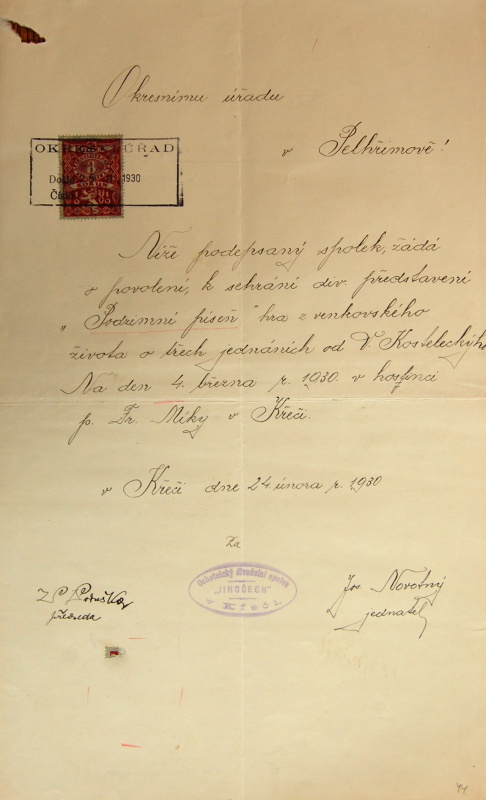 Okresnímu úřadu
v Pelhřimově!
OKRESNÍ ÚŘAD
1930
Níže podepsaný spolek, žádá
o povolení, k sehrání div. představení
„Podzimní píseň" hra z venkovského
života o třech jednáních od V. Kosteleckýho
Na den 4. března r. 1930. v hostinci
p. Fr. Míky v Křeči.
v Křeči dne 24. února r. 1930
Za
Ochotnický divadelní spolek
"JIHOČECH"
v Křeči.
předseda
Jos. Novotný
jednatel